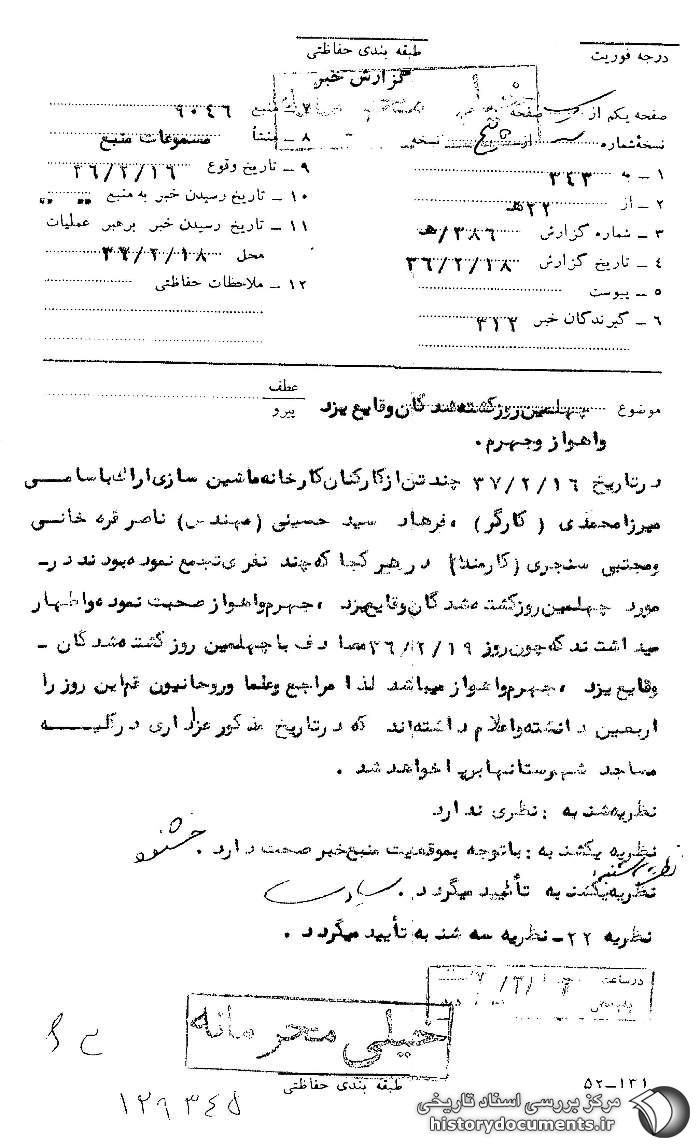 درجه فوریت
طبقه بندی حفاظتی
گزارش خبر
صفحه یکم از یک صفحه
نسخه شماره از پنج نسخه
۱ – به ۳۴۳
۲ – از ۲۲ هـ
۳ – شماره گزارش ۳۸۶/هـ
۴ – تاریخ گزارش ۳۶/۲/۱۸
۵ – پیوست
۶ – گیرندگان خبر ۳۱۲
۷ – منبع ۹۰۴۶
۸ – منشأ مسموعات منبع
۹ – تاریخ وقوع ۳۶/۲/۱۶
۱۰ – تاریخ رسیدن خبر به منبع " "
۱۱ – تاریخ رسیدن خبر برهبر عملیات
محل ۳۶/۲/۱۸
۱۲ – ملاحظات حفاظتی
موضوع چهلمین روز کشته شدگان وقایع یزد
عطف
پیرو
واهواز وجهرم .
در تاریخ ۳۷/۲/۱۶ چند تن از کارکنان کارخانه ماشین سازی اراک باسامی
میرزامحمدی ( کارگر ) ، فرهاد سید حسینی (مهندس) ناصر قره خانی
ومجتبی سنجری (کارمند) در هر کجا که چند نفری تجمع نموده بودند در –
مورد چهلمین روز کشته شدگان وقایع یزد ، جهرم واهواز صحبت نموده واظهار
میداشتند که چون روز ۳۶/۲/۱۹ مصادف با چهلمین روز کشته شدگان –
وقایع یزد ، جهرم واهواز میباشد لذا مراجع وعلما وروحانیون قم این روز را
اربعین دانسته واعلام داشته‌اند که در تاریخ مذکور عزاداری در کلیه
مساجد شهرستانها برپا خواهد شد .
نظریه شنبه : نظری ندارد
نظریه یکشنبه : باتوجه بموقعیت منبع خبر صحت دارد . خشنود
نظریه یکشنبه تأیید میگردد .
نظریه ۲۲– نظریه سه شنبه تأیید میگردد .
در ساعت
خیلی محرمانه
طبقه بندی حفاظتی
۵۲–۱۳۱
۱۲۹۳۴۵
مرکز بررسی اسناد تاریخی
historydocuments.ir